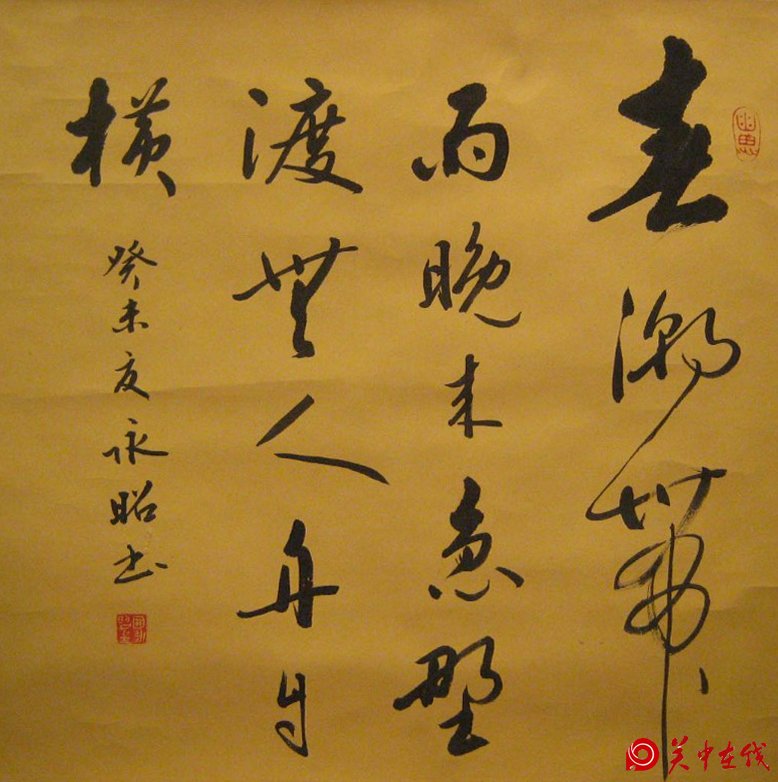 春潮帶
雨晚来急野
渡無人舟自
横
癸未夏永昭书
关中在线